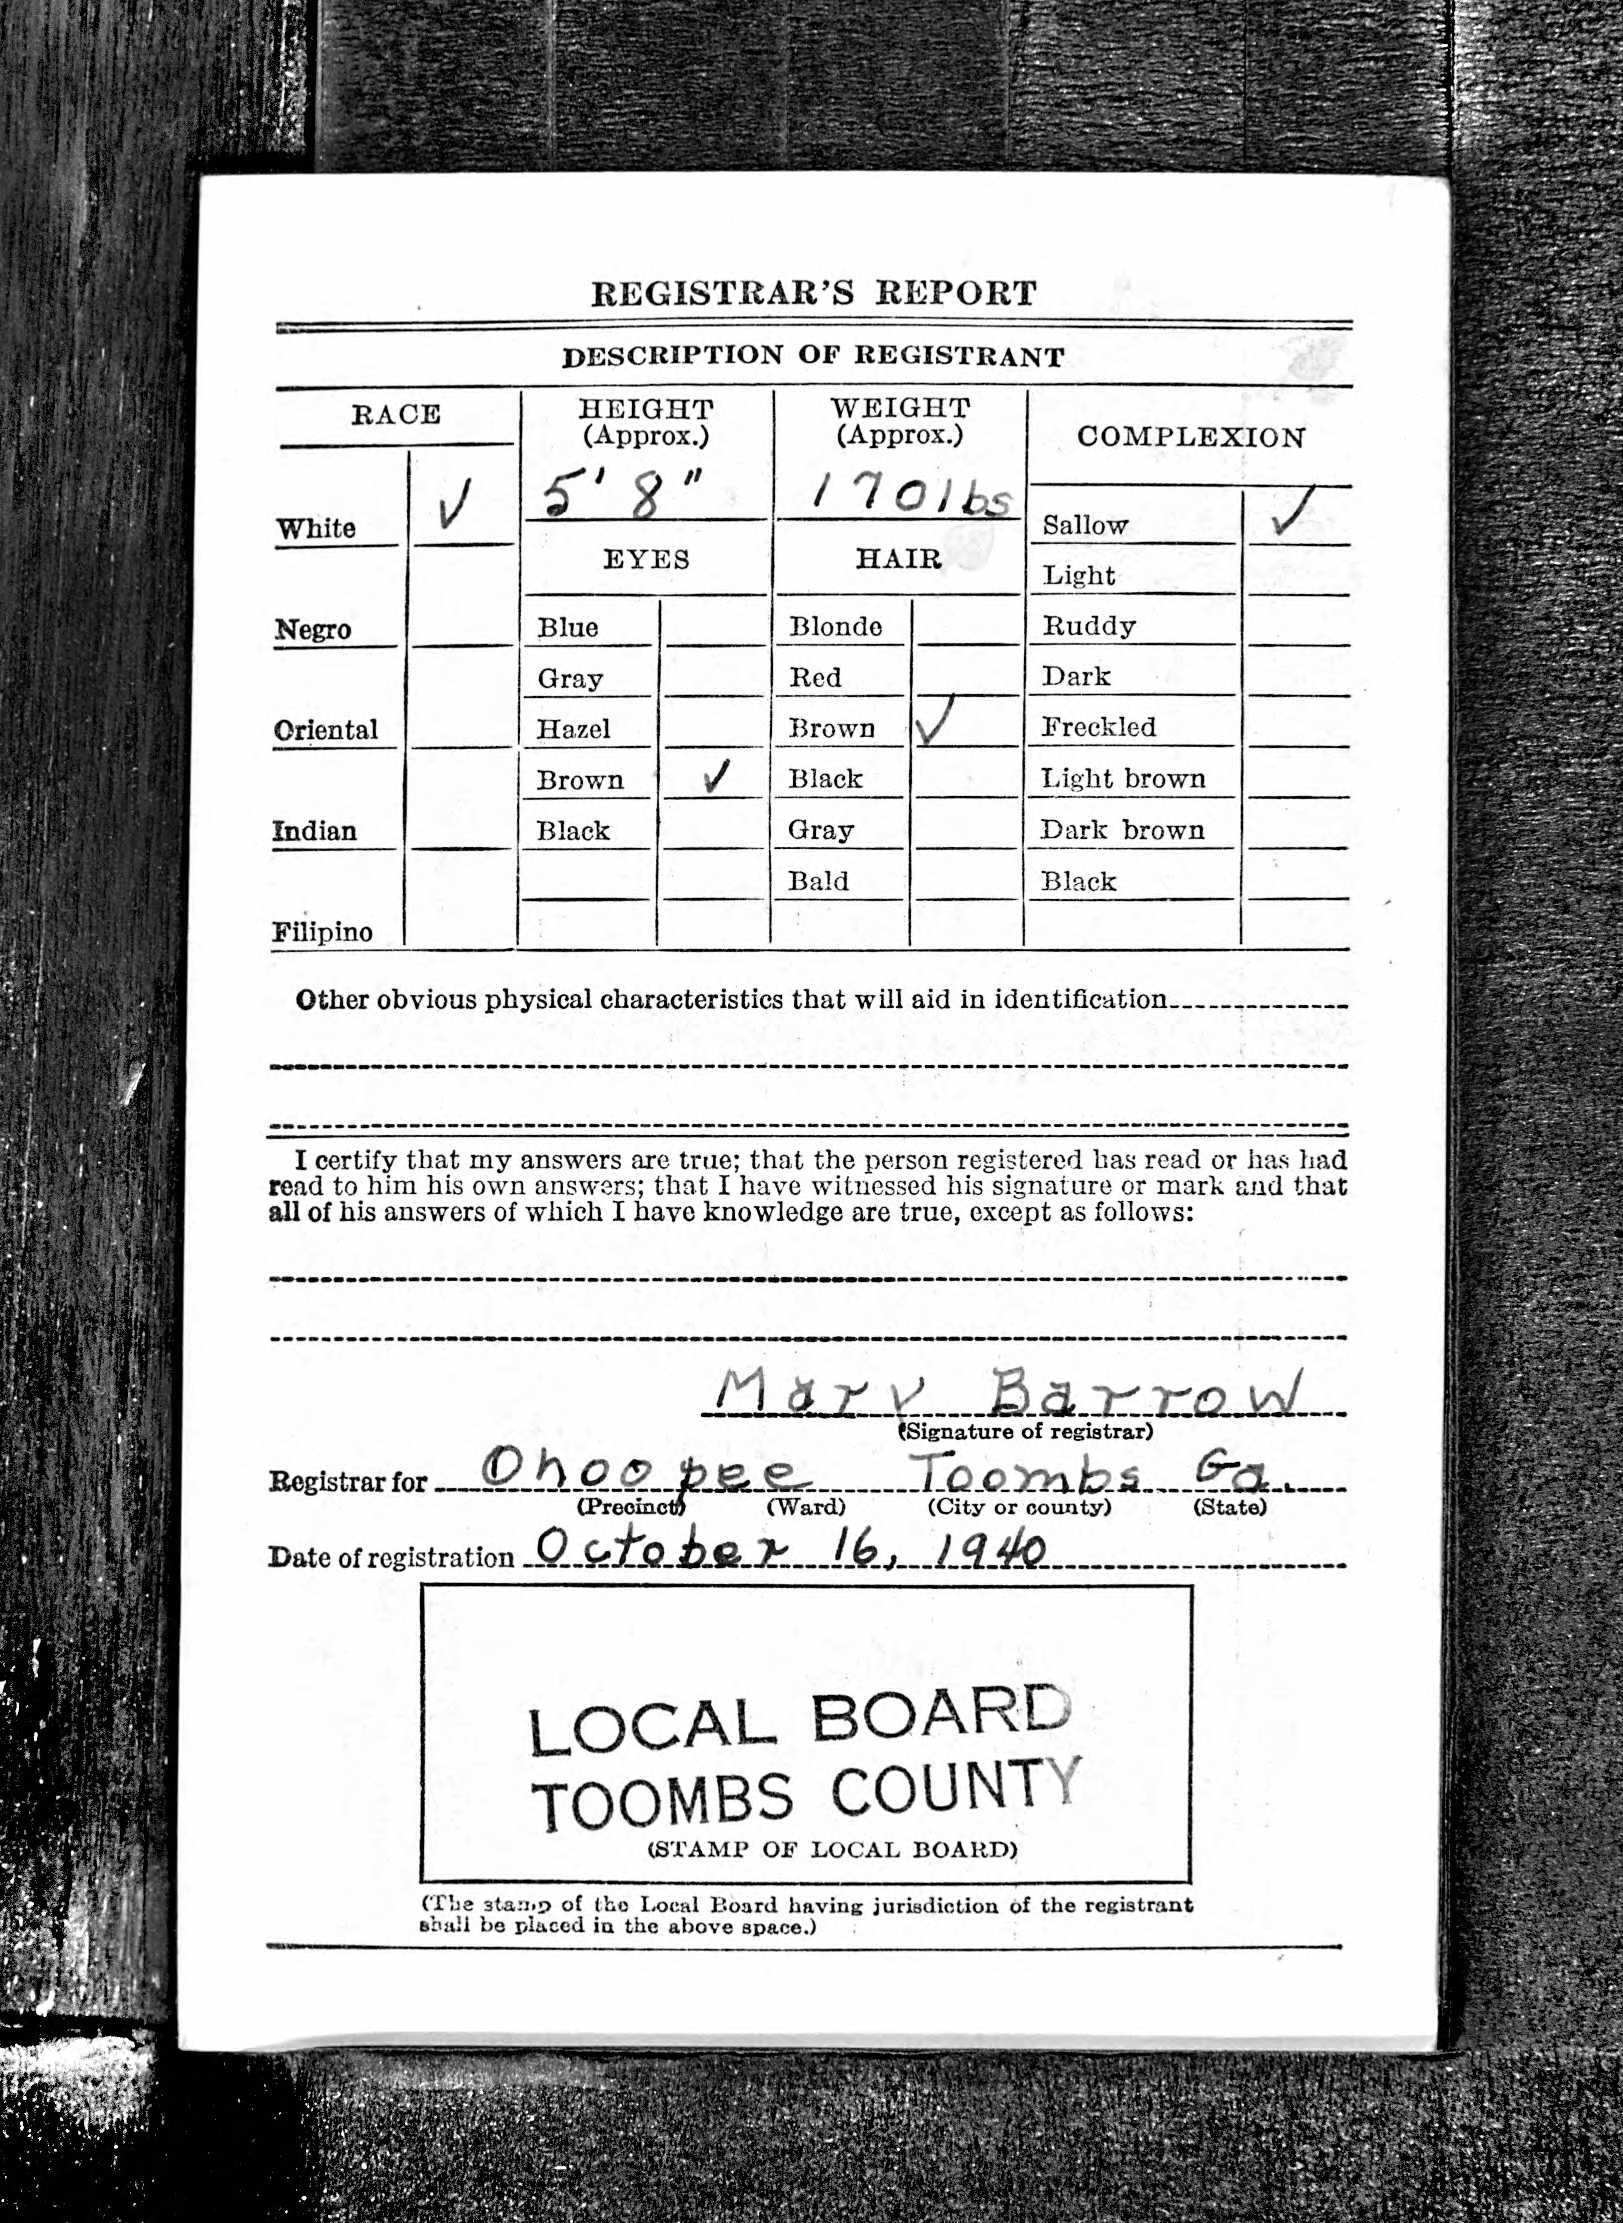 REGISTRAR'S REPORT
DESCRIPTION OF REGISTRANT
RACE
HEIGHT
(Approx.)
WEIGHT
(Approx.)
COMPLEXION
White ✓
5' 8"
170 lbs
Sallow ✓
EYES
HAIR
Light
Negro
Blue
Blonde
Ruddy
Gray
Red
Dark
Oriental
Hazel
Brown ✓
Freckled
Brown ✓
Black
Light brown
Indian
Black
Gray
Dark brown
Bald
Black
Filipino
Other obvious physical characteristics that will aid in identification
I certify that my answers are true; that the person registered has read or has had
read to him his own answers; that I have witnessed his signature or mark and that
all of his answers of which I have knowledge are true, except as follows:
Mary Barrow
(Signature of registrar)
Registrar for Ohoopee Toombs Ga.
(Precinct) (Ward) (City or county) (State)
Date of registration October 16, 1940
LOCAL BOARD
TOOMBS COUNTY
(STAMP OF LOCAL BOARD)
(The stamp of the Local Board having jurisdiction of the registrant
shall be placed in the above space.)